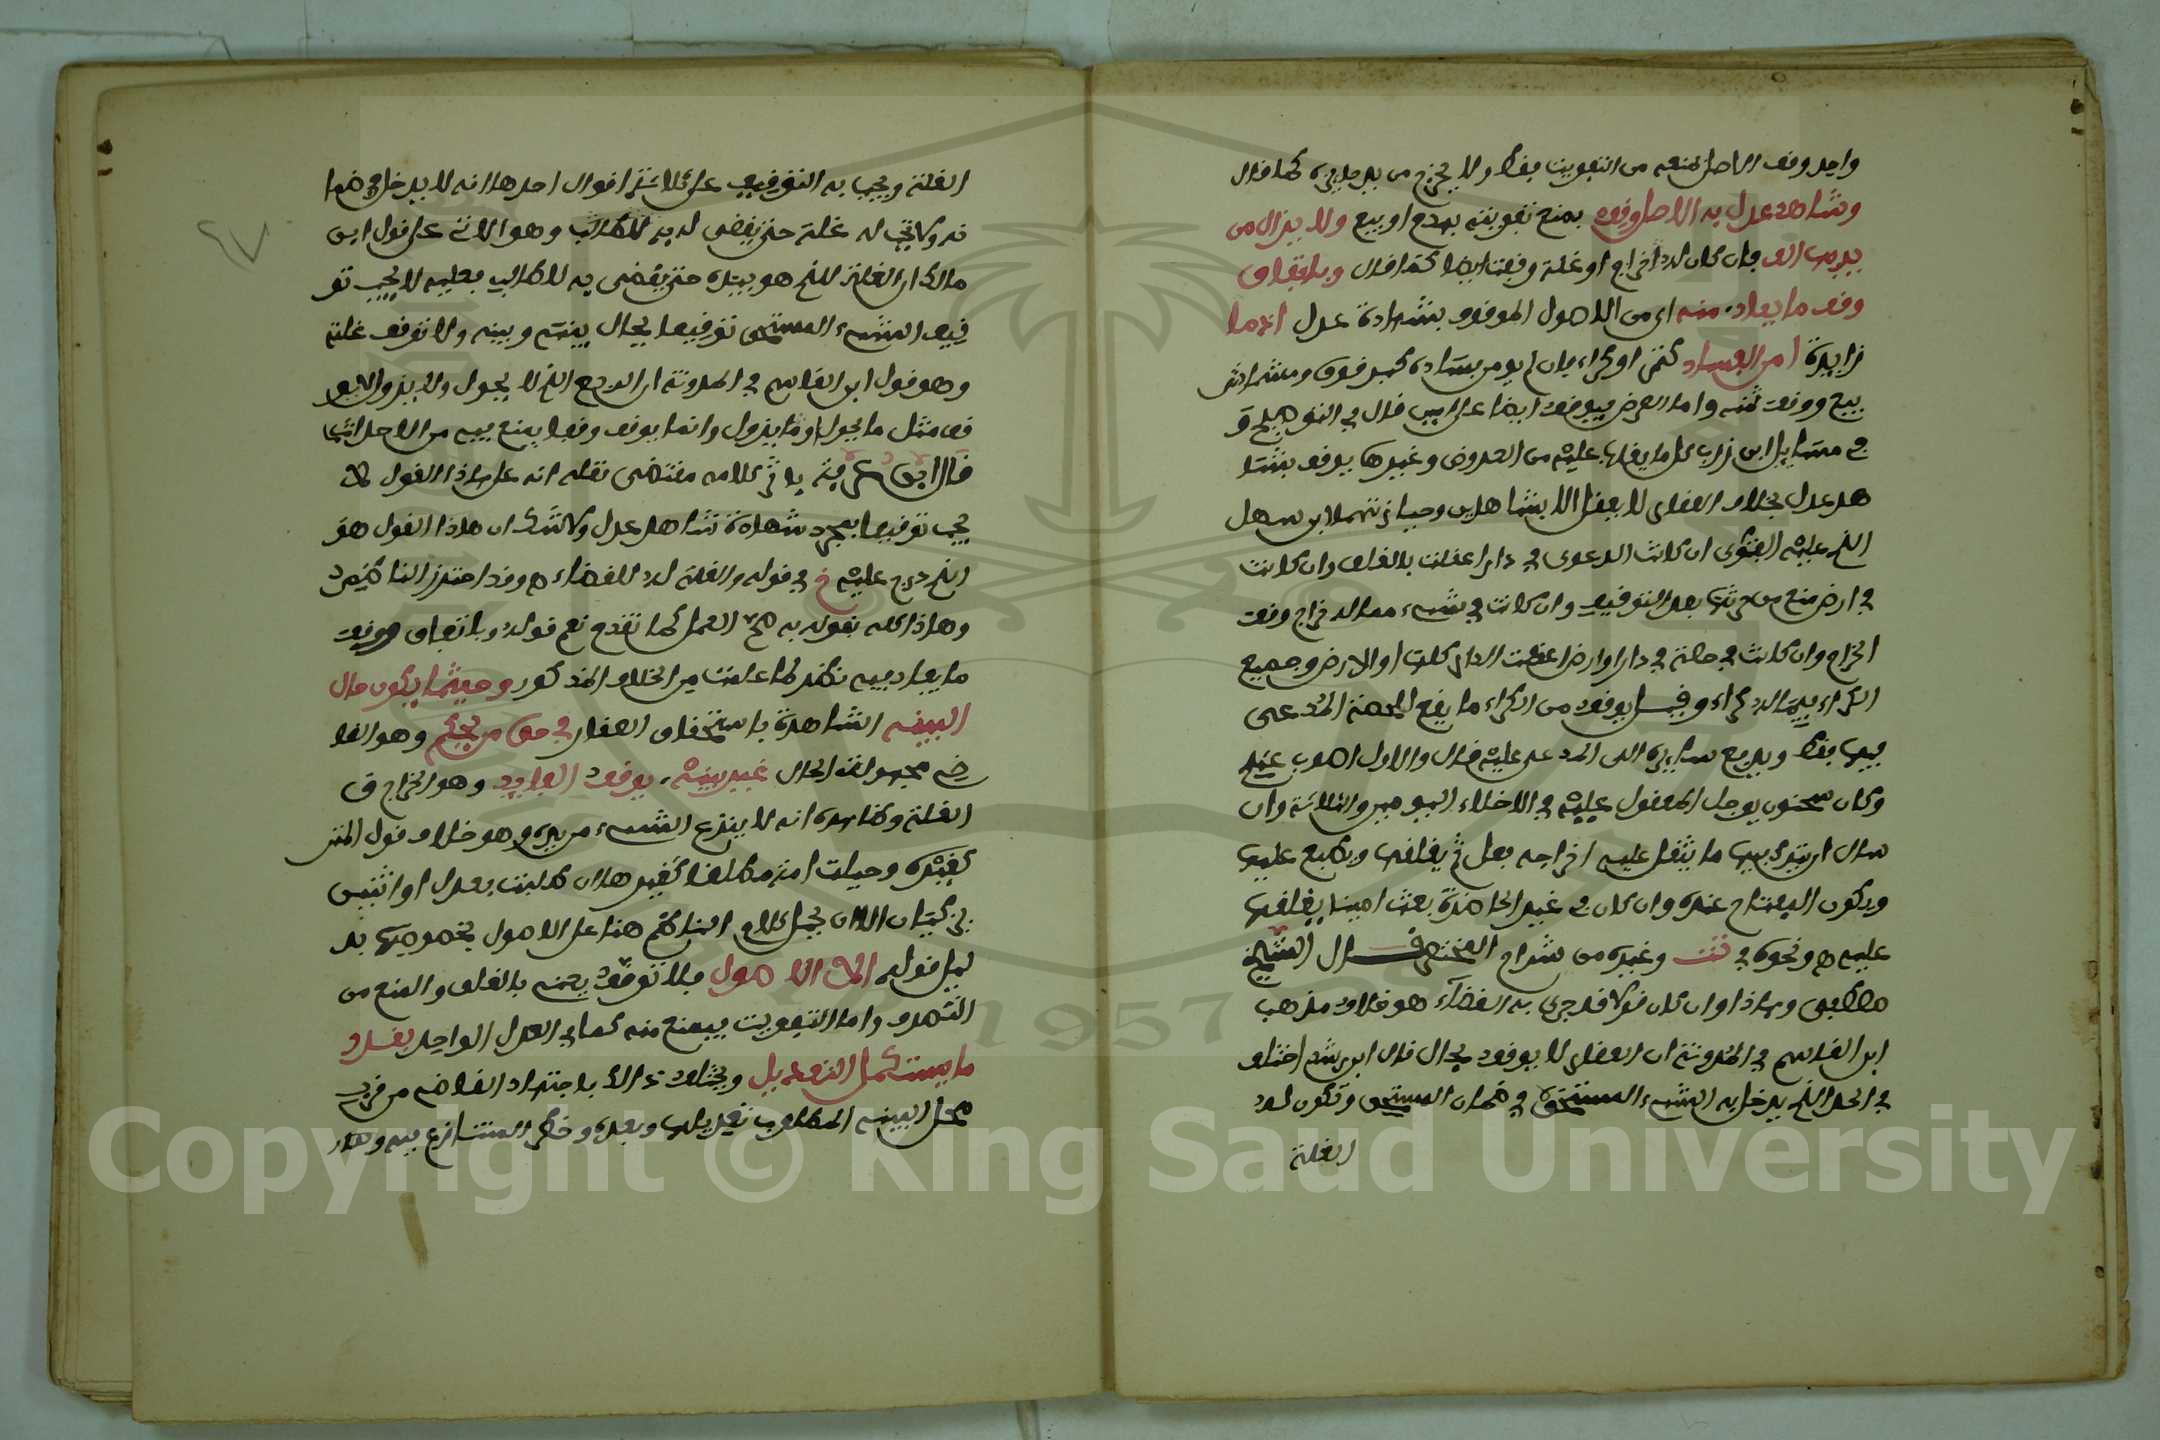 واحد وقف الاصل بمنعه من التفويت بفك ولا يخرج من يد حايزه كما قال
وشاهد عدل به الاصل وقف بمنع تفويته بهدم او بيع ولا يزال من
يد بها الف فان كان له خراج او غلة وقفت ايضا كما قال وباتفاق
وقف ما يعاد منه اى من الاصول الموقوف بشهادة عدل اذا ما
امن الفساد كتمر او كراء فان لم يومن فساده كبسر فوق ومشماش
بيع ووقف ثمنه واما العرض فيوقف ايضا على قال في
في مسايل ابن زرب كل ما يغاب عليه من العروض وغيرها يوقف بشا
هد عدل بخلاف العقار لا يعقل الا بشاهدين وحيازتهما لابن سهل
الذى عليه الفتوى ان كانت الدعوى في دار اعقلت بالغلق وان كانت
في ارض منع من حرثها بعد التوقيف وان كانت في شىء مما له خراج وقف
الخراج وان كانت في حصة في دار او ارض اعقلت الدار كلها او الارض وجميع
الكراء فيما له كراء وقيل يوقف من الكراء ما يقع للحصة المدعى
فيها فقط ويدفع سايره الى المدعى عليه قال والاول اصوب عندى
وكان سحنون يوجل المعقول عليه في الاخلاء اليومين والثلاثة وان
سال ان يترك فيها ما يثقل عليه اخراجه فعل ثم يغلقها ويطبع عليها
ويكون المفتاح عنده وان كان في غير الحاضرة بعث امينا يغلقها
عليه ونحوه في تت وغيره من شراح المختصر قال الشيخ
مصطفى وهذا وان كان قولا قد جرى به القضاء هو خلاف مذهب
ابن القاسم في المدونة ان العقار لا يوقف بحال قال ابن رشد اختلف
في الحد الذى يدخل به الشىء المستحق في ضمان المستحق وتكون له
الغلة
الغلة ويجب به التوقيف على ثلاثة اقوال احدها انه لا يدخل في ضما
نه ولا تجب له غلة حتى يقضى له به للطالب وهو الاتى على قول ابن
مالك ان الغلة للذى هو بيده حتى يقضى به للطالب فعليه لا يجب تو
قيف الشىء المستحق توقيفا يحال بينه وبينه ولا توقف غلته
وهو قول ابن القاسم في المدونة ان الربع الذى لا يحول ولا يزول لا يو
قف مثل ما يحول او ما يزول وانما يوقف وقفا يمنع فيه من الاحداث
قال ابن عرفة باثر كلامه مقتضى نقله انه على هذا القول لا
يجب توقيفها بمجرد شهادة شاهد عدل ولا شك ان هذا القول هو
الذى درج عليه خ في قوله والغلة له للقضاء وقد احتزر الناظم
وهذا كله بقوله به العمل كما تقدم نعم قوله وباتفاق ووقف
ما يعاد فيه نظر لما علمت من الخلاف المذكور وحيثما يكون حال
البينه الشاهدة باستحقاق العقار في حق من يحكم وهو القا
ضى مجهولة الحال غير بينه يوقف الفايد وهو الخراج ق
الغلة وظاهره انه لا ينزع الشىء من يده وهو خلاف قول المختصر
كغيره وحيلت امة مطلقا كغيرها ان طلبت بعدل او اثنين
يزكيان الا ان يحمل كلام الناظم هنا على الاصول بخصوصها بد
ليل قوله الا الاصول فلا توقف بمعنى بالغلق والمنع من
التصرف واما التفويت فيمنع منه كما في العدل الواحد بقدر
ما يستكمل التعديل ويختلف ذالك باجتهاد القاضى من قرب
محل البينه المطلوب تعديلها وبعده وخطر المتنازع فيه وهذا